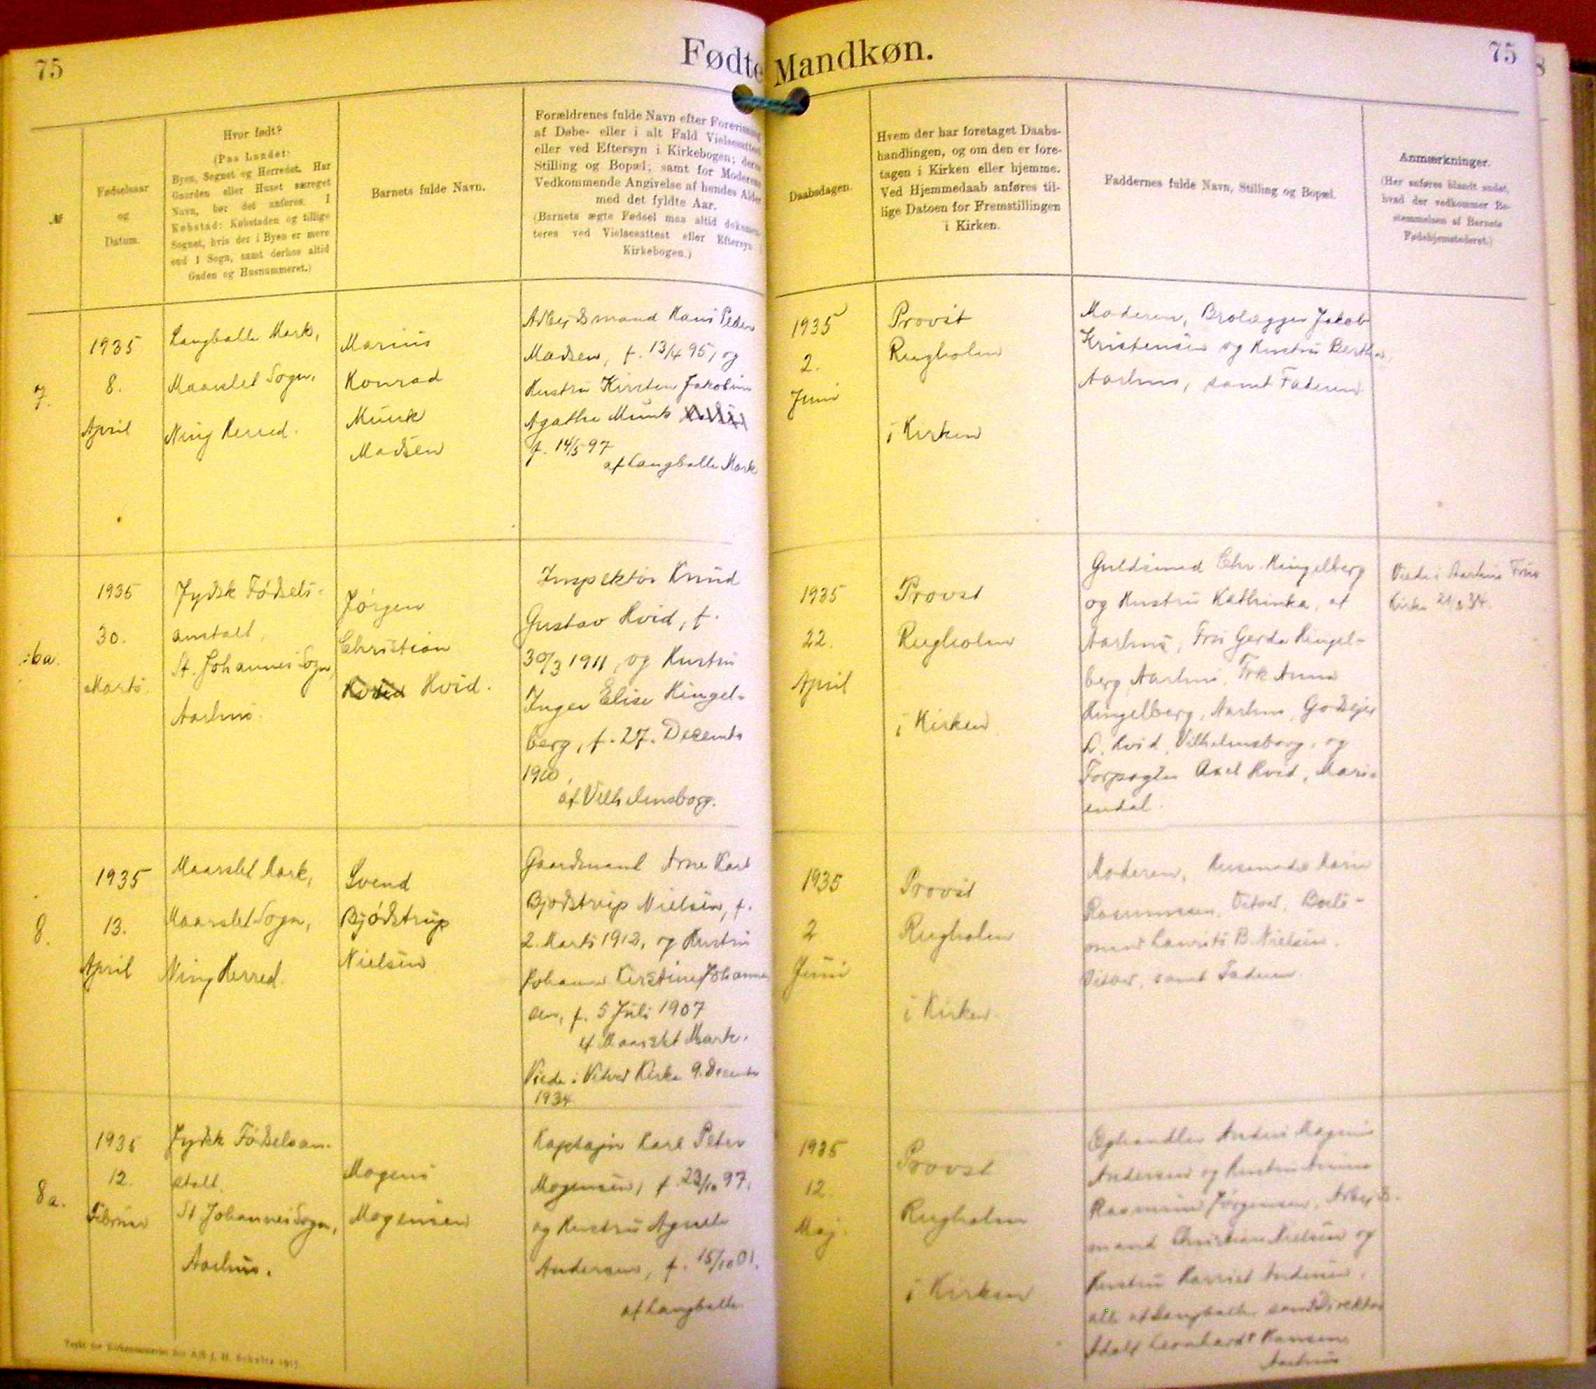 75
Fødte Mandkøn.
75
№
Fødselsaar
og
Datum.
Hvor født?
(Paa Landet:
Byen, Sognet og Herredet. Har
Gaarden eller Huset særeget
Navn, bør det anføres. I
Købstad: Købstaden og tillige
Sognet, hvis der i Byen er mere
end 1 Sogn, samt derhos altid
Gaden og Husnummeret.)
Barnets fulde Navn.
Forældrenes fulde Navn efter Forevisning
af Døbe- eller i alt Fald Vielsesattest
eller ved Eftersyn i Kirkebogen; deres
Stilling og Bopæl; samt for Moderens
Vedkommende Angivelse af hendes Alder
med det fyldte Aar.
(Barnets ægte Fødsel maa altid dokumen-
teres ved Vielsesattest eller Eftersyn i
Kirkebogen.)
Daabsdagen.
Hvem der har foretaget Daabs-
handlingen, og om den er fore-
tagen i Kirken eller hjemme.
Ved Hjemmedaab anføres til-
lige Datoen for Fremstillingen
i Kirken.
Faddernes fulde Navn, Stilling og Bopæl.
Anmærkninger.
(Her anføres blandt andet,
hvad der vedkommer Be-
stemmelsen af Barnets
Fødehjemstedsret.)
7.
1935
8.
April
Langballe Mark,
Maarslet Sogn,
Ning Herred.
Marius
Konrad
Munk
Madsen
Arbejdsmand Hans Peder
Madsen, f. 13/4 95, og
Hustru Kirsten Jakobine
Agathe Munk
f. 14/5 97
af Langballe Mark
1935
2.
Juni
Provst
Rugholm
i Kirken
Moderen, Brolægger Jakob
Kristensen og Hustru Bertha,
Aarhus, samt Faderen
6a.
1935
30.
Marts
Jydsk Fødsels-
anstalt,
St. Johannes Sogn,
Aarhus.
Jørgen
Christian
Hvid.
Inspektør Knud
Gustav Hvid, f.
30/3 1911, og Hustru
Inger Elise Ringel-
berg, f. 27. Decemb
1910,
af Vilhelmsborg.
1935
22.
April
Provst
Rugholm
i Kirken
Guldsmed Chr. Ringelberg
og Hustru Kathinka, af
Aarhus, Fru Gerda Ringel-
berg, Aarhus, Frk. Anna
Ringelberg, Aarhus, Godsejer
Hvid, Vilhelmsborg, og
Forpagter Axel Hvid, Mari-
endal.
Viede i Aarhus Frue
Kirke 34.
8.
1935
13.
April
Maarslet Mark,
Maarslet Sogn,
Ning Herred.
Svend
Bjødstrup
Nielsen
Gaardmand Arne Karl
Bjødstrup Nielsen, f.
2. Marts 1912, og Hustru
Johanne Kirstine Johanne-
sen, f. 5 Juli 1907
af Maarslet Mark.
Viede i Vitved Kirke 9. Decemb
1934
1935
2
Juni
Provst
Rugholm
i Kirken.
Moderen, Husmand Marin
Rasmussen, Vitved, Bods-
mand Laurits B. Nielsen,
Vitved, samt Faderen.
8a.
1935
12.
Februar
Jydsk Fødselsan-
stalt,
St Johannes Sogn,
Aarhus.
Mogens
Mogensen
Kaptajn Karl Peter
Mogensen, f. 23/10 97,
og Hustru Agnete
Andersen, f. 15/10 01.
af Langballe
1935
12.
Maj.
Provst
Rugholm
i Kirken
Øghandler Anders Magnus
Andersen og Hustru
Rasmine Jørgensen, Arbejds-
mand Christian Nielsen og
Hustru Harriet Andersen,
alle af Langballe samt Direktør
Adolf Leonhardt Hansen,
Aarhus